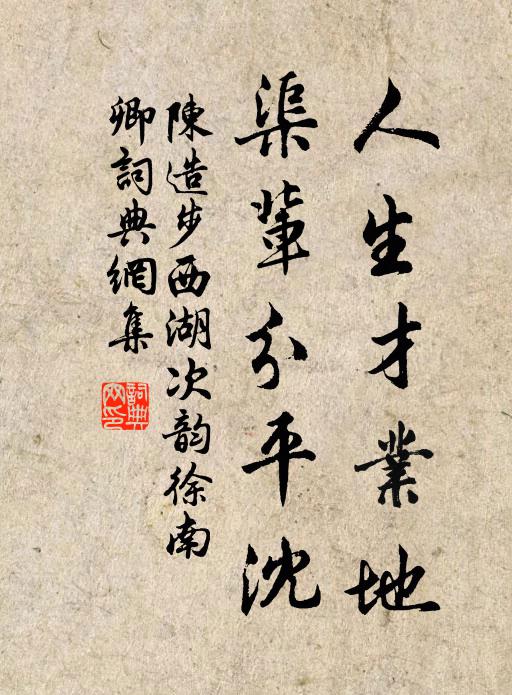 人生才業地
渠輩分平沈
陳造步西湖次韵徐南
卿詞典網集
詞典
网印